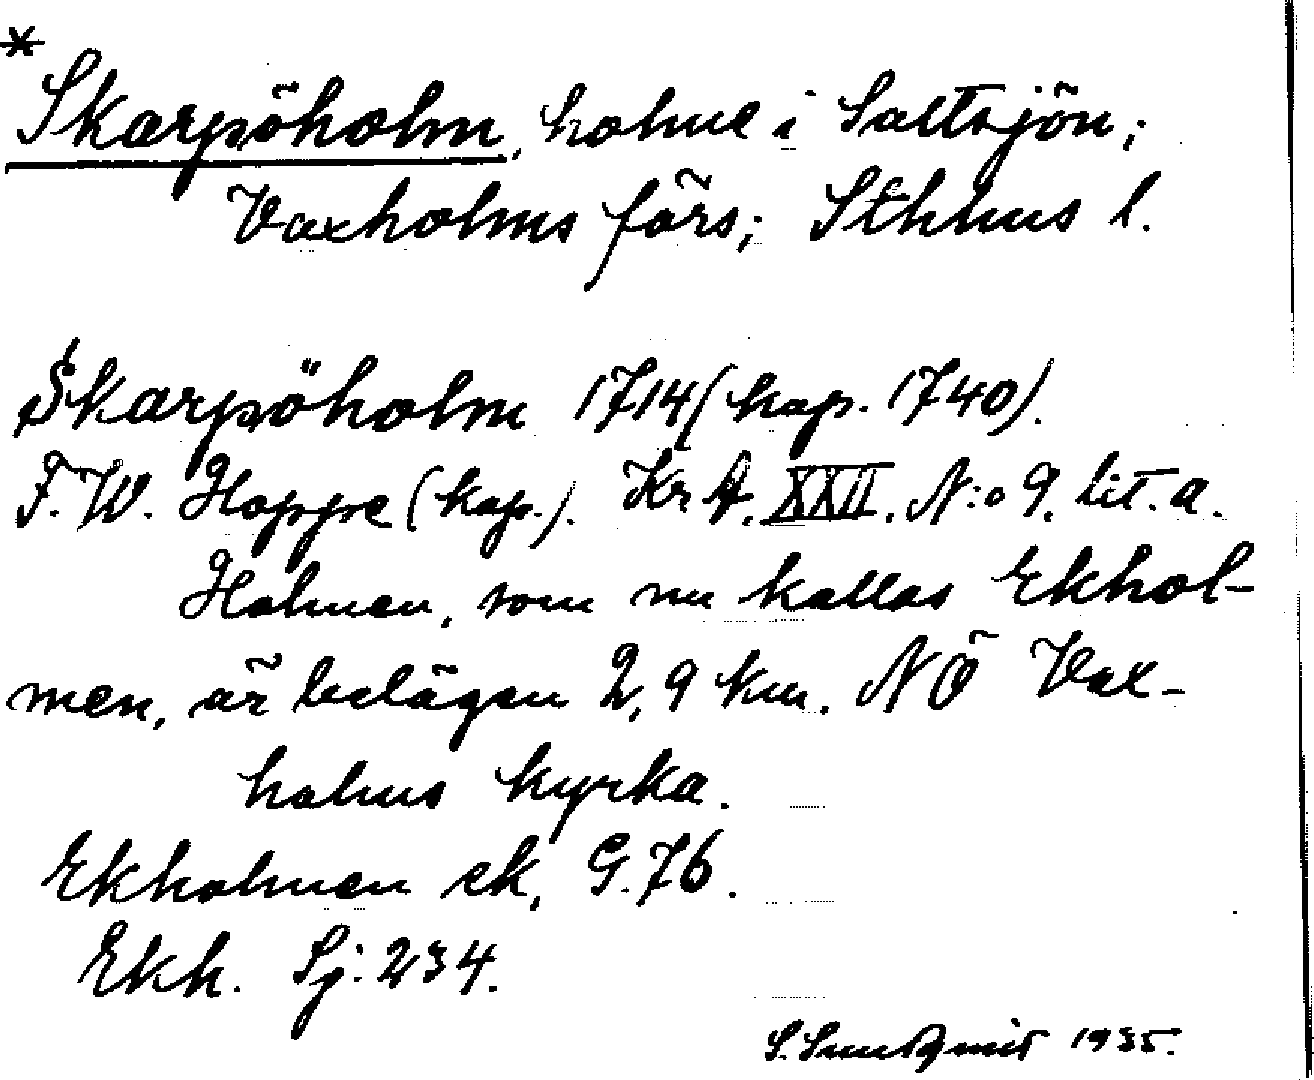 *
Skarpöholm, holme i Saltsjön;
Vaxholms förs; Sthlms l.
Skarpöholm 1714 (kop. 1740).
F. W. Hoppe (kop.). Kr A. XXII. N:o 9. lit. a.
Holmen, som nu kallas Ekhol-
men, är belägen 2,9 km. NÖ Vax-
holms kyrka.
Ekholmen ek, G. 76.
Ekh. Sj. 234.
S. 1935.